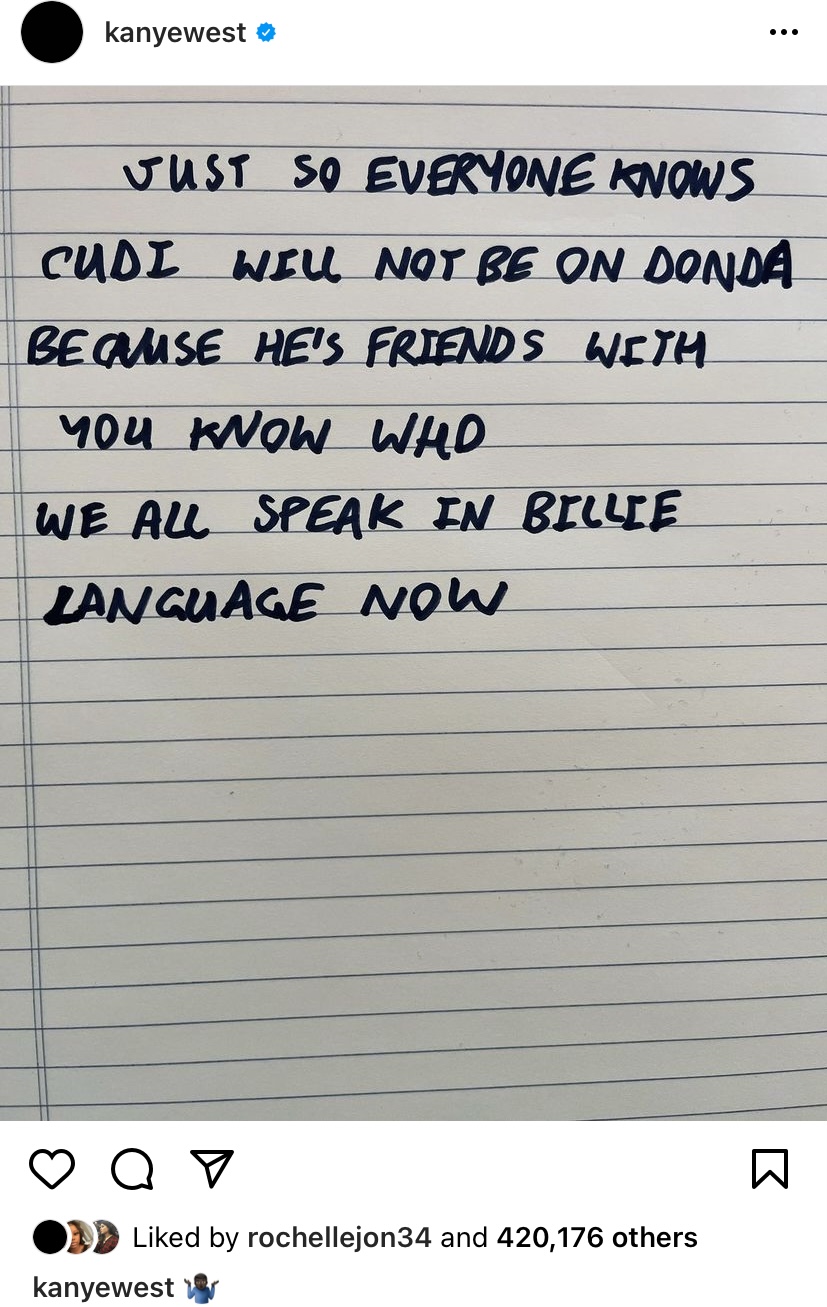 kanyewest
JUST SO EVERYONE KNOWS
CUDI WILL NOT BE ON DONDA
BECAUSE HE'S FRIENDS WITH
YOU KNOW WHO
WE ALL SPEAK IN BILLIE
LANGUAGE NOW
Liked by rochellejon34 and 420,176 others
kanyewest 🤷🏿‍♂️